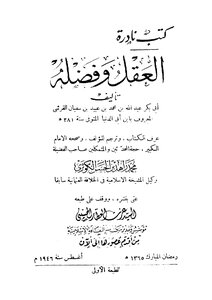 كتب نادرة
العقل وفضله
تأليف
أبي بكر عبد الله بن محمد بن عبيد بن سفيان القرشي
المعروف بابن أبي الدنيا المتوفى سنة ٢٨١ هـ
عرف الكتاب، وترجم للمؤلف، وصححه الامام
الكبير، حجة المحدثين والمتكلمين صاحب الفضيلة
محمد زاهد بن الحسن الكوثري
وكيل المشيخة الاسلامية في الخلافة العثمانية سابقا
عني بنشره، ووقف على طبعه
السيد عزت العطار الحسيني
من أقدم عصورها إلى الآن
رمضان المبارك ١٣٦٥ هـ
أغسطس سنة ١٩٤٦ م
الطبعة الأولى